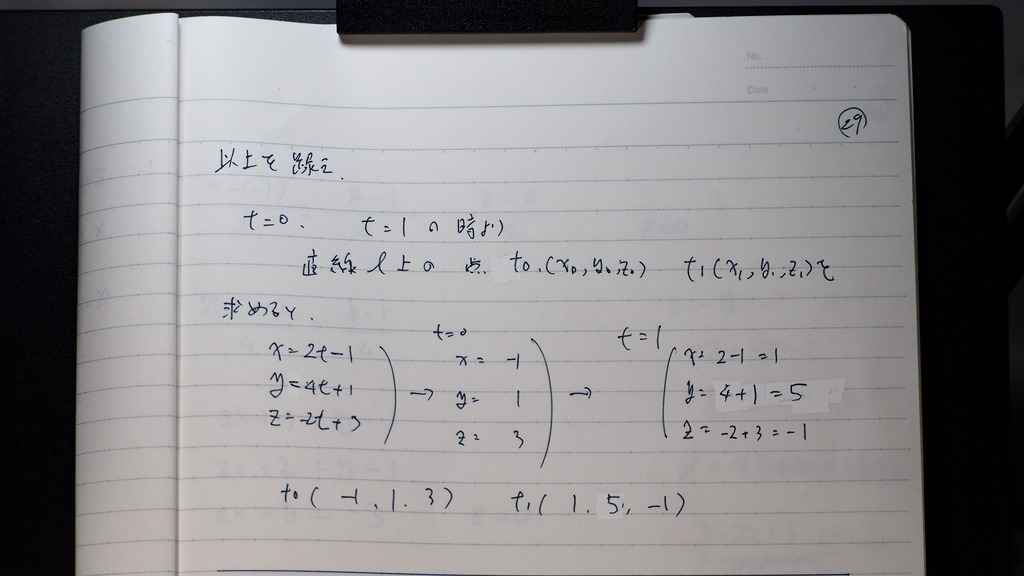 No.
Date
29
以上を 線に
t=0. t=1 の 時より
直線 l 上の 点. t0.(x0, y0, z0) t1(x1, y1, z1)を
求めると.
t=0 t=1
x=2t-1 → x= -1 → x= 2-1 =1
y=4t+1 y= 1 y= 4+1 =5
z=-2t+3 z= 3 z= -2+3 =-1
t0( -1. 1. 3) t1( 1. 5, -1)